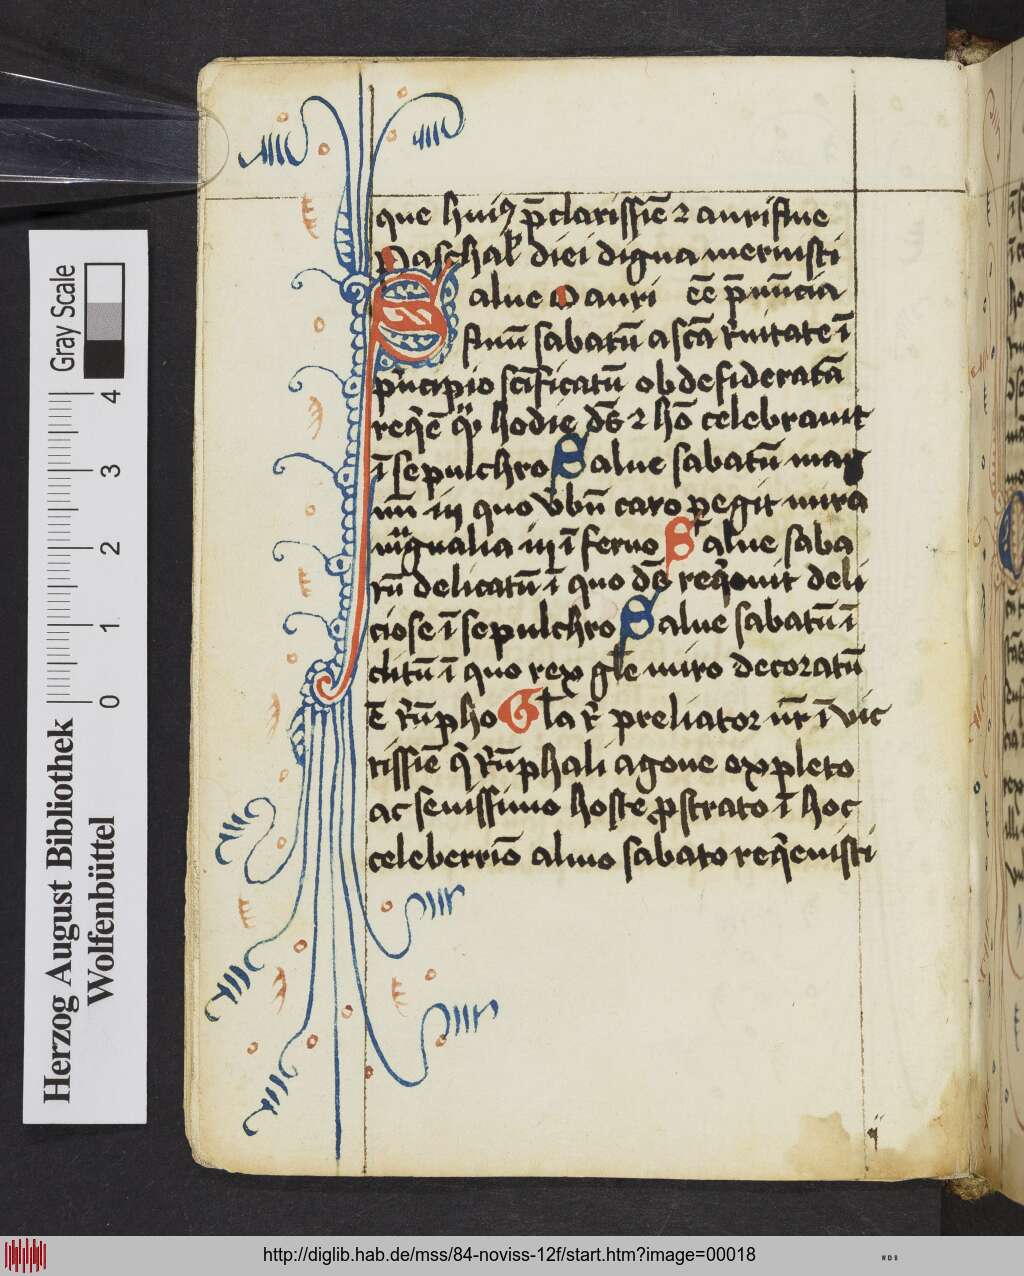 que hui⁹ p̄clarissīe ⁊ auriflue
Paschał diei digna meruisti
Salue Dauri ēē p̄nūcia
finū sabatū a scā t̓nitate ī
p̓ncipio scīficatū ob desideratā
req̓ē q̓ hodie ds̄ ⁊ hō celebrauit
ī sepulchro Salue sabatū mag
nū in quo v̓bū caro pegit mira
mignalia in īferno Salue saba
tū delicatū ī quo ds̄ req̓euit deli
ciose ī sepulchro Salue sabatū ī
clitū ī quo rex gl̄e miro decoratū
ē t̓ūpho Gl̄a t̓ preliator nr̄ īvic
tissīe q̓ t̓ūphali agone expleto
ac seuissimo hoste ꝓstrato ī hoc
celeberriō almo sabato req̓euisti
Herzog August Bibliothek
Wolfenbüttel
Gray Scale
0 1 2 3 4
http://diglib.hab.de/mss/84-noviss-12f/start.htm?image=00018